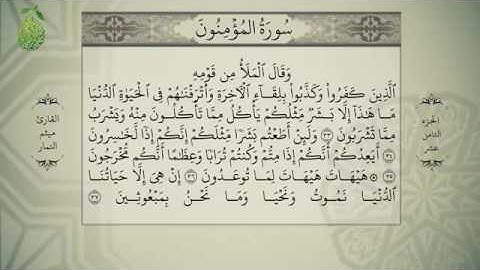 سُورَةُ المُؤْمِنُونَ
وَقَالَ ٱلْمَلَأُ مِن قَوْمِهِ
ٱلَّذِينَ كَفَرُوا۟ وَكَذَّبُوا۟ بِلِقَآءِ ٱلْـَٔاخِرَةِ وَأَتْرَفْنَـٰهُمْ فِى ٱلْحَيَوٰةِ ٱلدُّنْيَا
مَا هَـٰذَآ إِلَّا بَشَرٌ مِّثْلُكُمْ يَأْكُلُ مِمَّا تَأْكُلُونَ مِنْهُ وَيَشْرَبُ
مِمَّا تَشْرَبُونَ ٣٣ وَلَئِنْ أَطَعْتُم بَشَرًا مِّثْلَكُمْ إِنَّكُمْ إِذًا لَّخَـٰسِرُونَ
٣٤ أَيَعِدُكُمْ أَنَّكُمْ إِذَا مِتُّمْ وَكُنتُمْ تُرَابًا وَعِظَـٰمًا أَنَّكُم مُّخْرَجُونَ
٣٥ ۞ هَيْهَاتَ هَيْهَاتَ لِمَا تُوعَدُونَ ٣٦ إِنْ هِىَ إِلَّا حَيَاتُنَا
ٱلدُّنْيَا نَمُوتُ وَنَحْيَا وَمَا نَحْنُ بِمَبْعُوثِينَ ٣٧
الجزء
الثامن
عشر
القارئ
ميثم
التمار